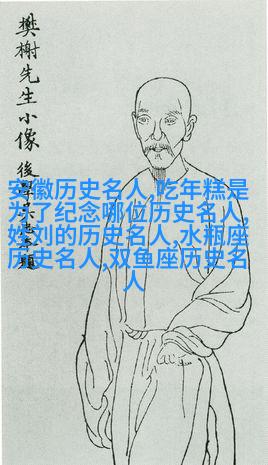 樊榭先生小像
後學
安徽历史名人,吃年糕是
为了纪念哪位历史名人,
姓刘的历史名人,水瓶座
历史名人,双鱼座历史名
人